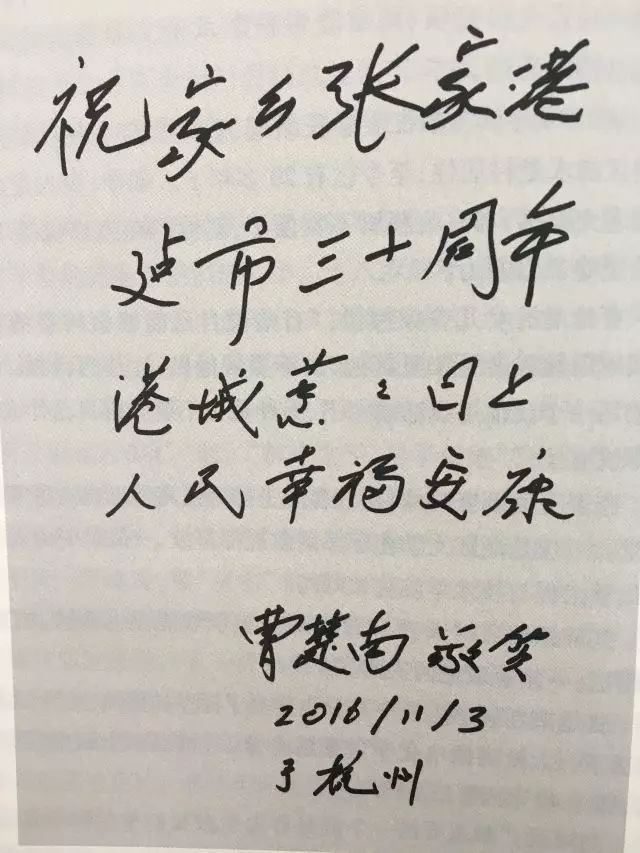 祝家乡张家港
建市三十周年
港城蒸々日上
人民幸福安康
曹楚南 敬笑
2016/11/3
于杭州